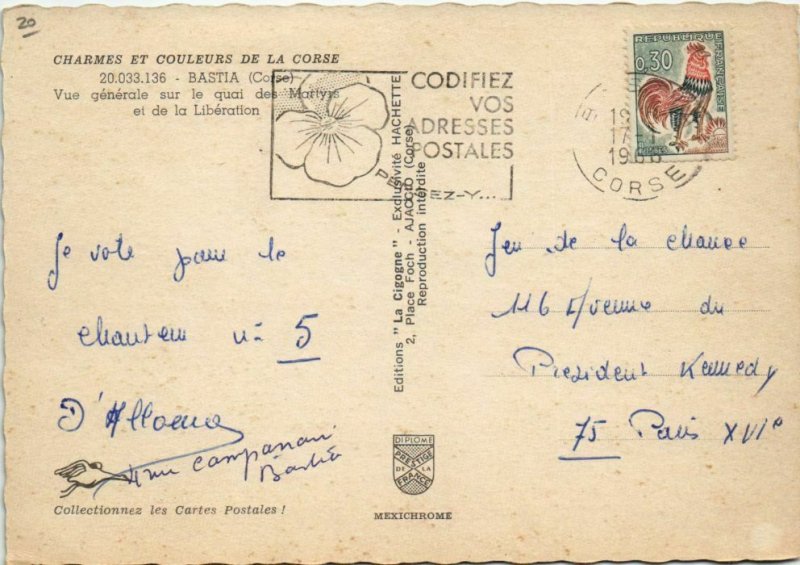 20
CHARMES ET COULEURS DE LA CORSE
20.033.136 - BASTIA (Corse)
Vue générale sur le quai des Martyrs
et de la Libération
CODIFIEZ
VOS
ADRESSES
POSTALES
PENSEZ-Y...
REPUBLIQUE FRANÇAISE
0,30
17
CORSE
Je vote pour le
chanteur n° 5
D'Alloma
4 rue Campanari
Bastia
Collectionnez les Cartes Postales !
Editions "La Cigogne" - Exclusivité HACHETTE
2, Place Foch - AJACCIO (Corse)
Reproduction interdite
DIPLOME
PRESTIGE
DE LA
FRANCE
MEXICHROME
Jeu de la chance
116 Avenue du
President Kennedy
75 Paris XVIe